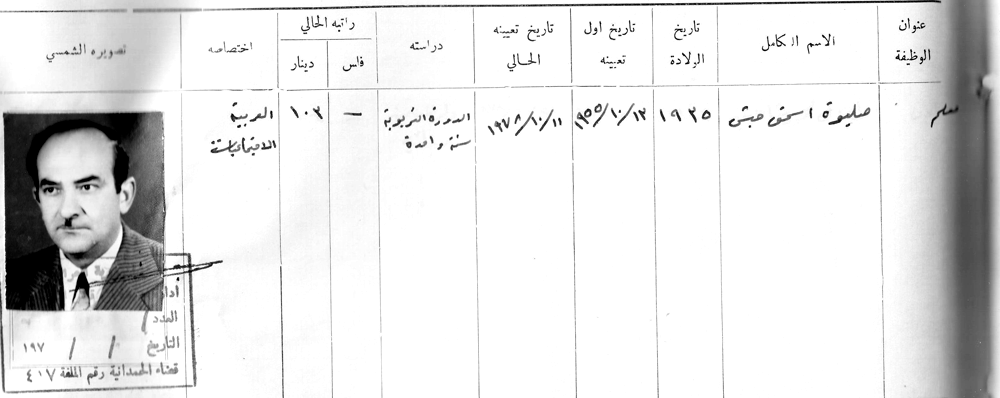 عنوان الوظيفة
الاسم الكامل
تاريخ الولادة
تاريخ اول تعيينه
تاريخ تعيينه الحالي
دراسته
راتبه الحالي
فلس
دينار
اختصاصه
تصويره الشمسي
معلم
صليوة اسحق حبش
١٩٣٥
١٩٥٥/١٠/١٣
١٩٧٨/١٠/١١
الدورة التربوية
سنة واحدة
—
١٠٣
العربية
الاجتماعيات
العدد /
التاريخ / / ١٩٧
قضاء الحمدانية رقم الملفة ٤٠٧